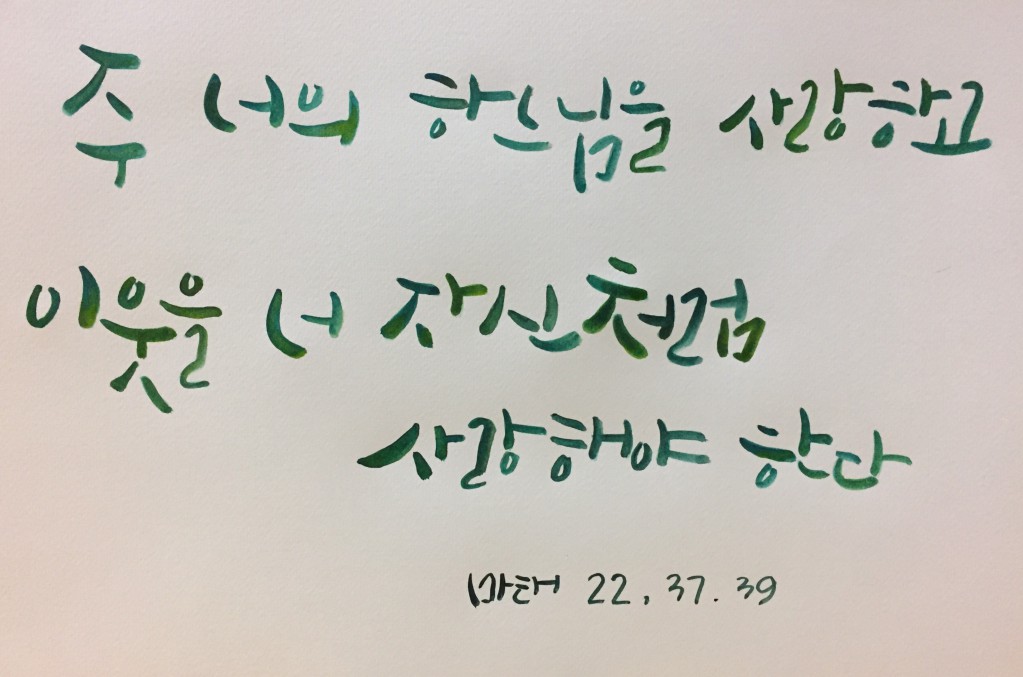 주 너의 하느님을 사랑하고
이웃을 너 자신처럼
사랑해야 한다
마태 22, 37. 39